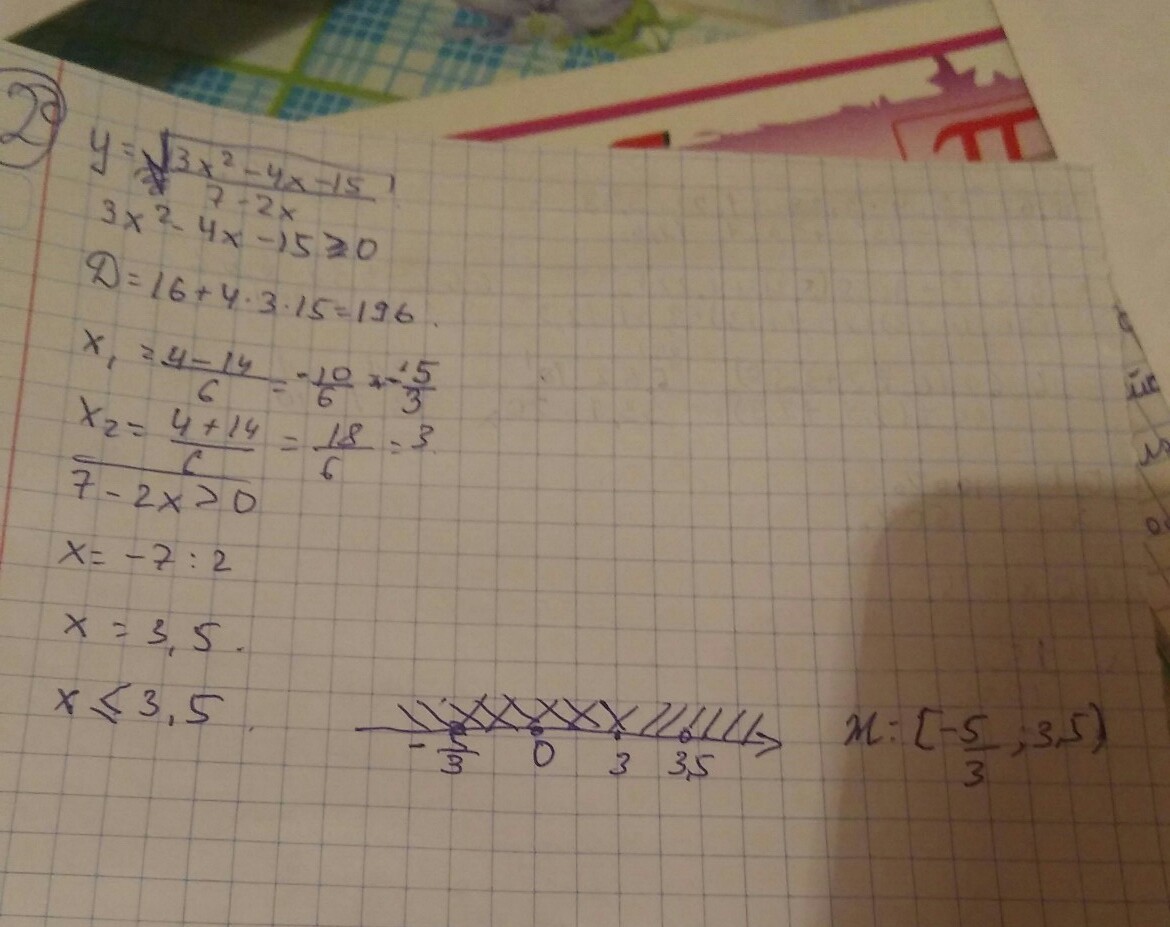 2
y = √(3x² - 4x - 15) / (7 - 2x)
3x² - 4x - 15 ≥ 0
D = 16 + 4 · 3 · 15 = 196.
x₁ = (4 - 14) / 6 = -10/6 = -5/3
x₂ = (4 + 14) / 6 = 18/6 = 3
7 - 2x > 0
x = -7 : 2
x = 3,5.
x ≤ 3,5.
-5/3 0 3 3,5
x: [-5/3; 3,5)